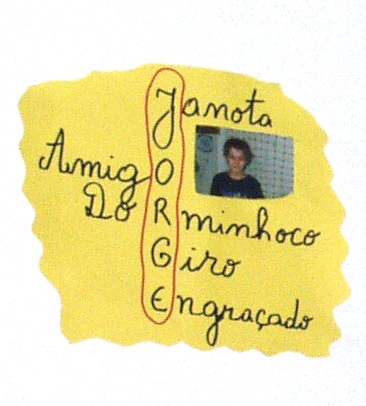 Janota
AmigO
DoRminhoco
Giro
Engraçado